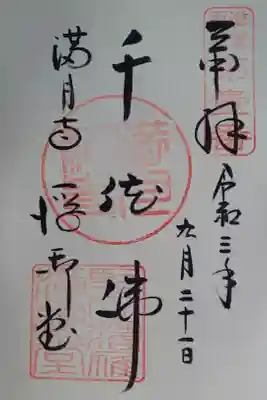 奉拝
令和三年
九月二十一日
千体佛
満月寺 浮御堂